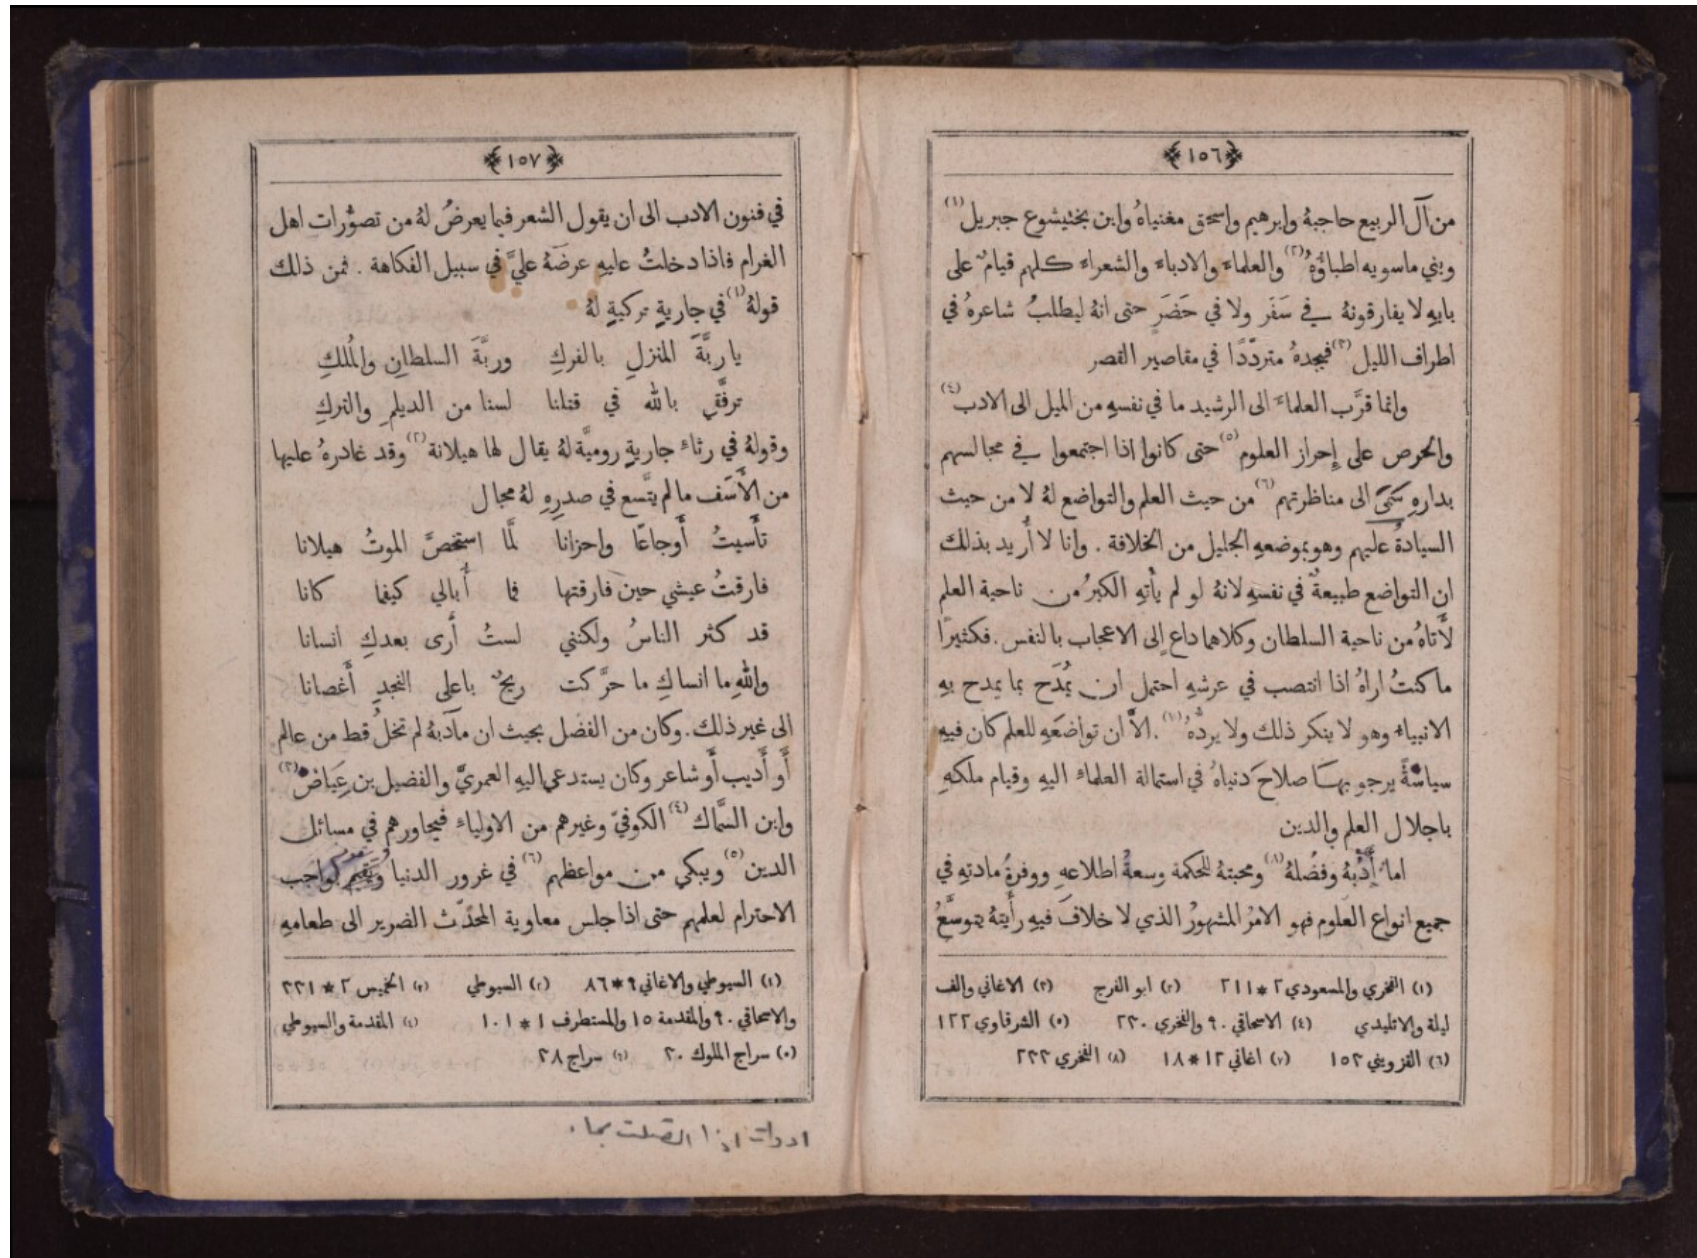 ﴿١٥٦﴾
من آل الربيع حاجبهُ وابرهيم واسحق مغنياهُ وابن بختيشوع جبريل (١)
وبني ماسويه اطباؤُهُ (٢) والعلماءُ والادباءُ والشعراءُ كلهم قيامٌ على
بابهِ لا يفارقونهُ في سَفَر ولا في حَضَرٍ حتى انهُ ليطلبُ شاعرهُ في
اطراف الليل (٣) فيجدهُ متردّدًا في مقاصير القصر
وانما قرَّب العلماءَ الى الرشيد ما في نفسهِ من الميل الى الادب (٤)
والحرص على إِحراز العلوم (٥) حتى كانوا اذا اجتمعوا في مجالسهم
بدارهِ الى مناظرتهم (٦) من حيث العلم والتواضع لهُ لا من حيث
السيادةُ عليهم وهو بموضعهِ الجليل من الخلافة . وانا لا أُريد بذلك
ان التواضع طبيعةٌ في نفسهِ لانهُ لو لم يأتهِ الكبرُ من ناحية العلم
لأَتاهُ من ناحية السلطان وكلاهما داعٍ إلى الاعجاب بالنفس . فكثيرًا
ما كنتُ اراهُ اذا انتصب في عرشهِ احتمل ان يُمدَح بما يمدح بهِ
الانبياءُ وهو لا ينكر ذلك ولا يردُّهُ (٧) . الاَّ ان تواضعَهِ للعلم كان فيهِ
سياسةً يرجو بها صلاحَ دنياهُ في استمالة العلماء اليهِ وقيام ملكهِ
باجلال العلم والدين
اما أَدَبُهُ وفضُلهُ (٨) ومحبتهُ للحكمة وسعةُ اطلاعهِ ووفرةُ مادتهِ في
جميع انواع العلوم فهو الامرُ المشهورُ الذي لا خلافَ فيهِ رأَيتهُ يتوسَّعُ
(١) الفخري والمسعودي ٢ * ٢١١ (٢) ابو الفرج (٣) الاغاني والف
ليلة والاتليدي (٤) الاسحاقي ٩٠ والفخري ٢٣٠ (٥) الشرقاوي ١٢٢
(٦) القزويني ١٥٢ (٧) اغاني ١٢ * ١٨ (٨) الفخري ٢٣٢
﴿١٥٧﴾
في فنون الادب الى ان يقول الشعر فيما يعرضُ لهُ من تصوُّرات اهل
الغرام فاذا دخلتُ عليهِ عرضَهُ عليَّ في سبيل الفكاهة . فمن ذلك
قولهُ (١) في جاريةٍ تركيةٍ لهُ
يا ربَّةَ المنزلِ بالفركِ وربَّةَ السلطانِ والمُلكِ
ترفَّقي بالله في قتلنا لسنا من الديلمِ والتركِ
وقولهُ في رثاءِ جاريةٍ روميَّة لهُ يقال لها هيلانة (٢) وقد غادرهُ عليها
من الأَسَف ما لم يتَّسع في صدرِهِ لهُ مجال
تأَسيتُ أَوجاعًا واحزانا لمَّا استخصَّ الموتُ هيلانا
فارقتُ عيشي حينَ فارقتها فما أُبالي كيفما كانا
قد كثر الناسُ ولكنني لستُ أَرى بعدكِ انسانا
واللهِ ما انساكِ ما حرَّكت ريحٌ باعلى النجدِ أَغصانا
الى غير ذلك. وكان من الفضل بحيث ان مآدَبهُ لم تخلُ قط من عالم
أَو أَديب أَو شاعر وكان يستدعي اليهِ العمريَّ والفضيل بن عِيَاض (٣)
وابن السَّماك (٤) الكوفيّ وغيرهم من الاولياءِ فيحاورهم في مسائل
الدين (٥) ويبكي من مواعظهم (٦) في غرور الدنيا ويَقيمُ بواجب
الاحترام لعلمهم حتى اذا جلس معاوية المحدّث الضرير الى طعامهِ
(١) السيوطي والاغاني ٩ * ٨٦ (٢) السيوطي (٣) الخميس ٢ * ٢٣١
والاسحاقي ٩٠ والمقدمة ١٥ والمستطرف ١ * ١٠١ (٤) المقدمة والسيوطي
(٥) سراج الملوك ٢٠ (٦) سراج ٢٨
ادوات اذا اتصلت بما